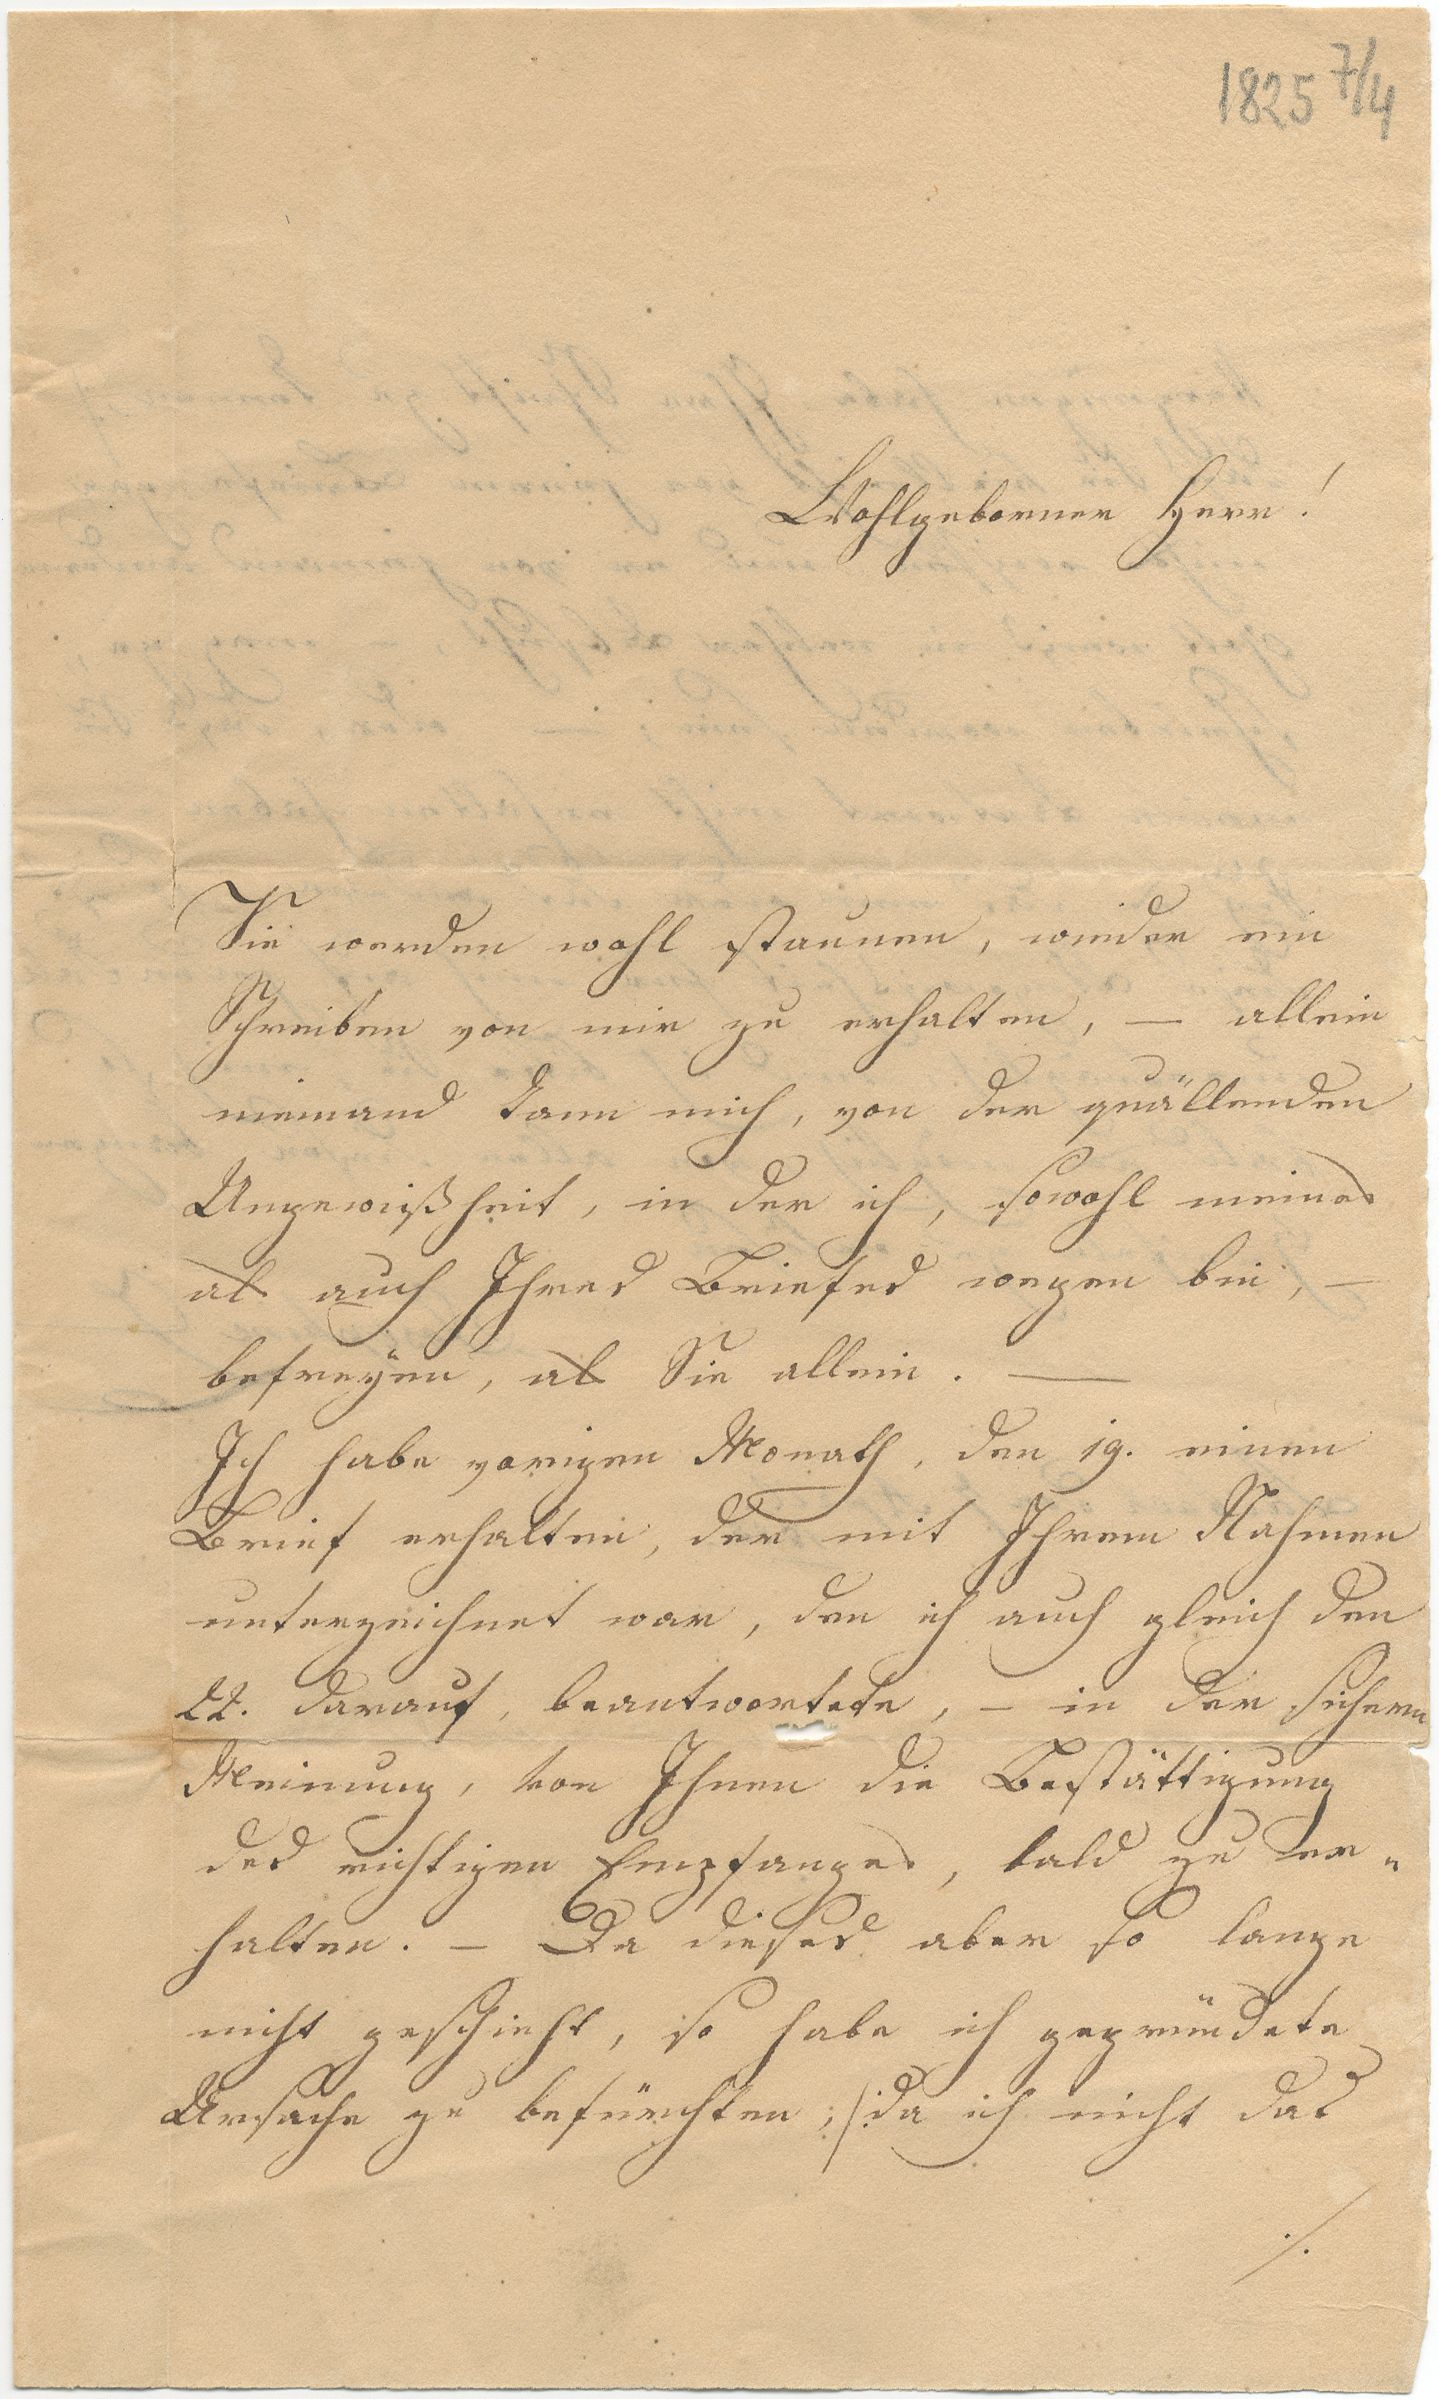 1825 7/4
Wohlgeborner Herr!
Sie werden wohl staunen, wieder ein
Schreiben von mir zu erhalten, — allein
niemand kann mich, von der quällenden
Ungewißheit, in der ich, sowohl meines
als auch Ihres Briefes wegen bin, —
befreÿen, als Sie allein. —
Ich habe vorigen Monath, den 19. einen
Brief erhalten, der mit Ihrem Nahmen
unterzeichnet war, den ich auch gleich den
22. darauf, beantwortete, — in der sichern
Meinung, von Ihnen die Bestättigung
des richtigen Empfanges, bald zu er„
halten. — Da dieses aber so lange
nicht geschieht, so habe ich gegründete
Ursache zu befürchten, /: da ich nicht das
./.